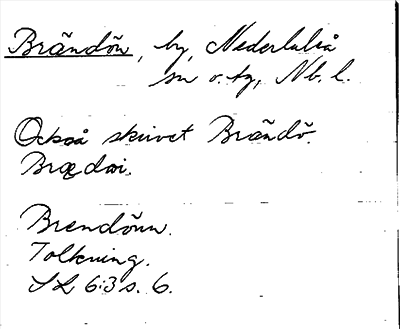 Brändön, by, Nederluleå
sn o. tg, Nb. l.
Också skrivet Brändö.
Brædøi.
Brendönn.
Tolkning.
SL 6:3 s. 6.